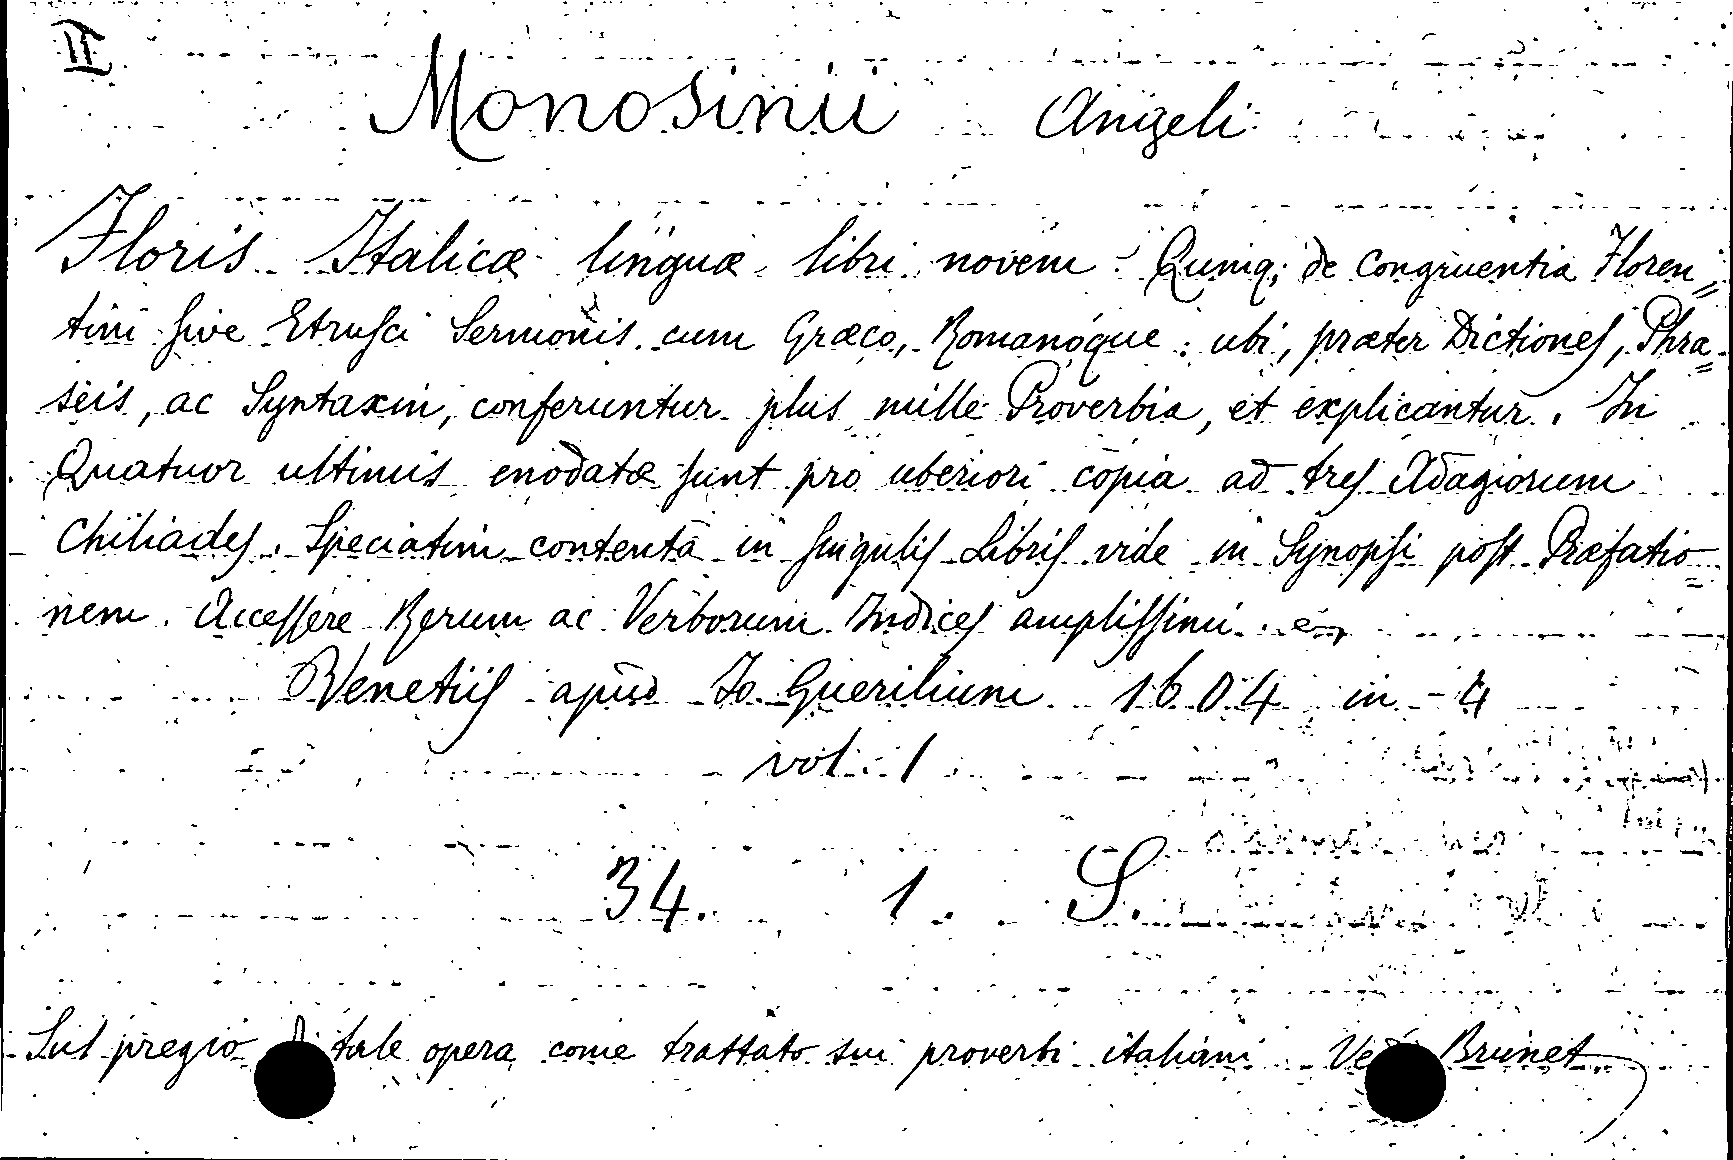 II
Monosinii Angeli
Floris Italicæ linguæ libri novem. Quinq; de Congruentia Floren=
tini sive Etrusci Sermonis cum Græco, Romanóque: ubi, præter Dictiones, Phra=
seis, ac Syntaxin, conferuntur plus mille Proverbia, et explicantur. In
Quatuor ultimis enodatæ sunt pro uberiori copia ad tres Adagiorum
Chiliades. Speciatim contenta in singulis Libris vide in Synopsi post Præfatio=
nem. Accessere Rerum ac Verborum Indices amplissimi.
Venetiis apud Jo. Guerilium 1604 in-4
vol. 1
34. 1. S.
Sul pregio di tale opera come trattato sui proverbi italiani Brunet